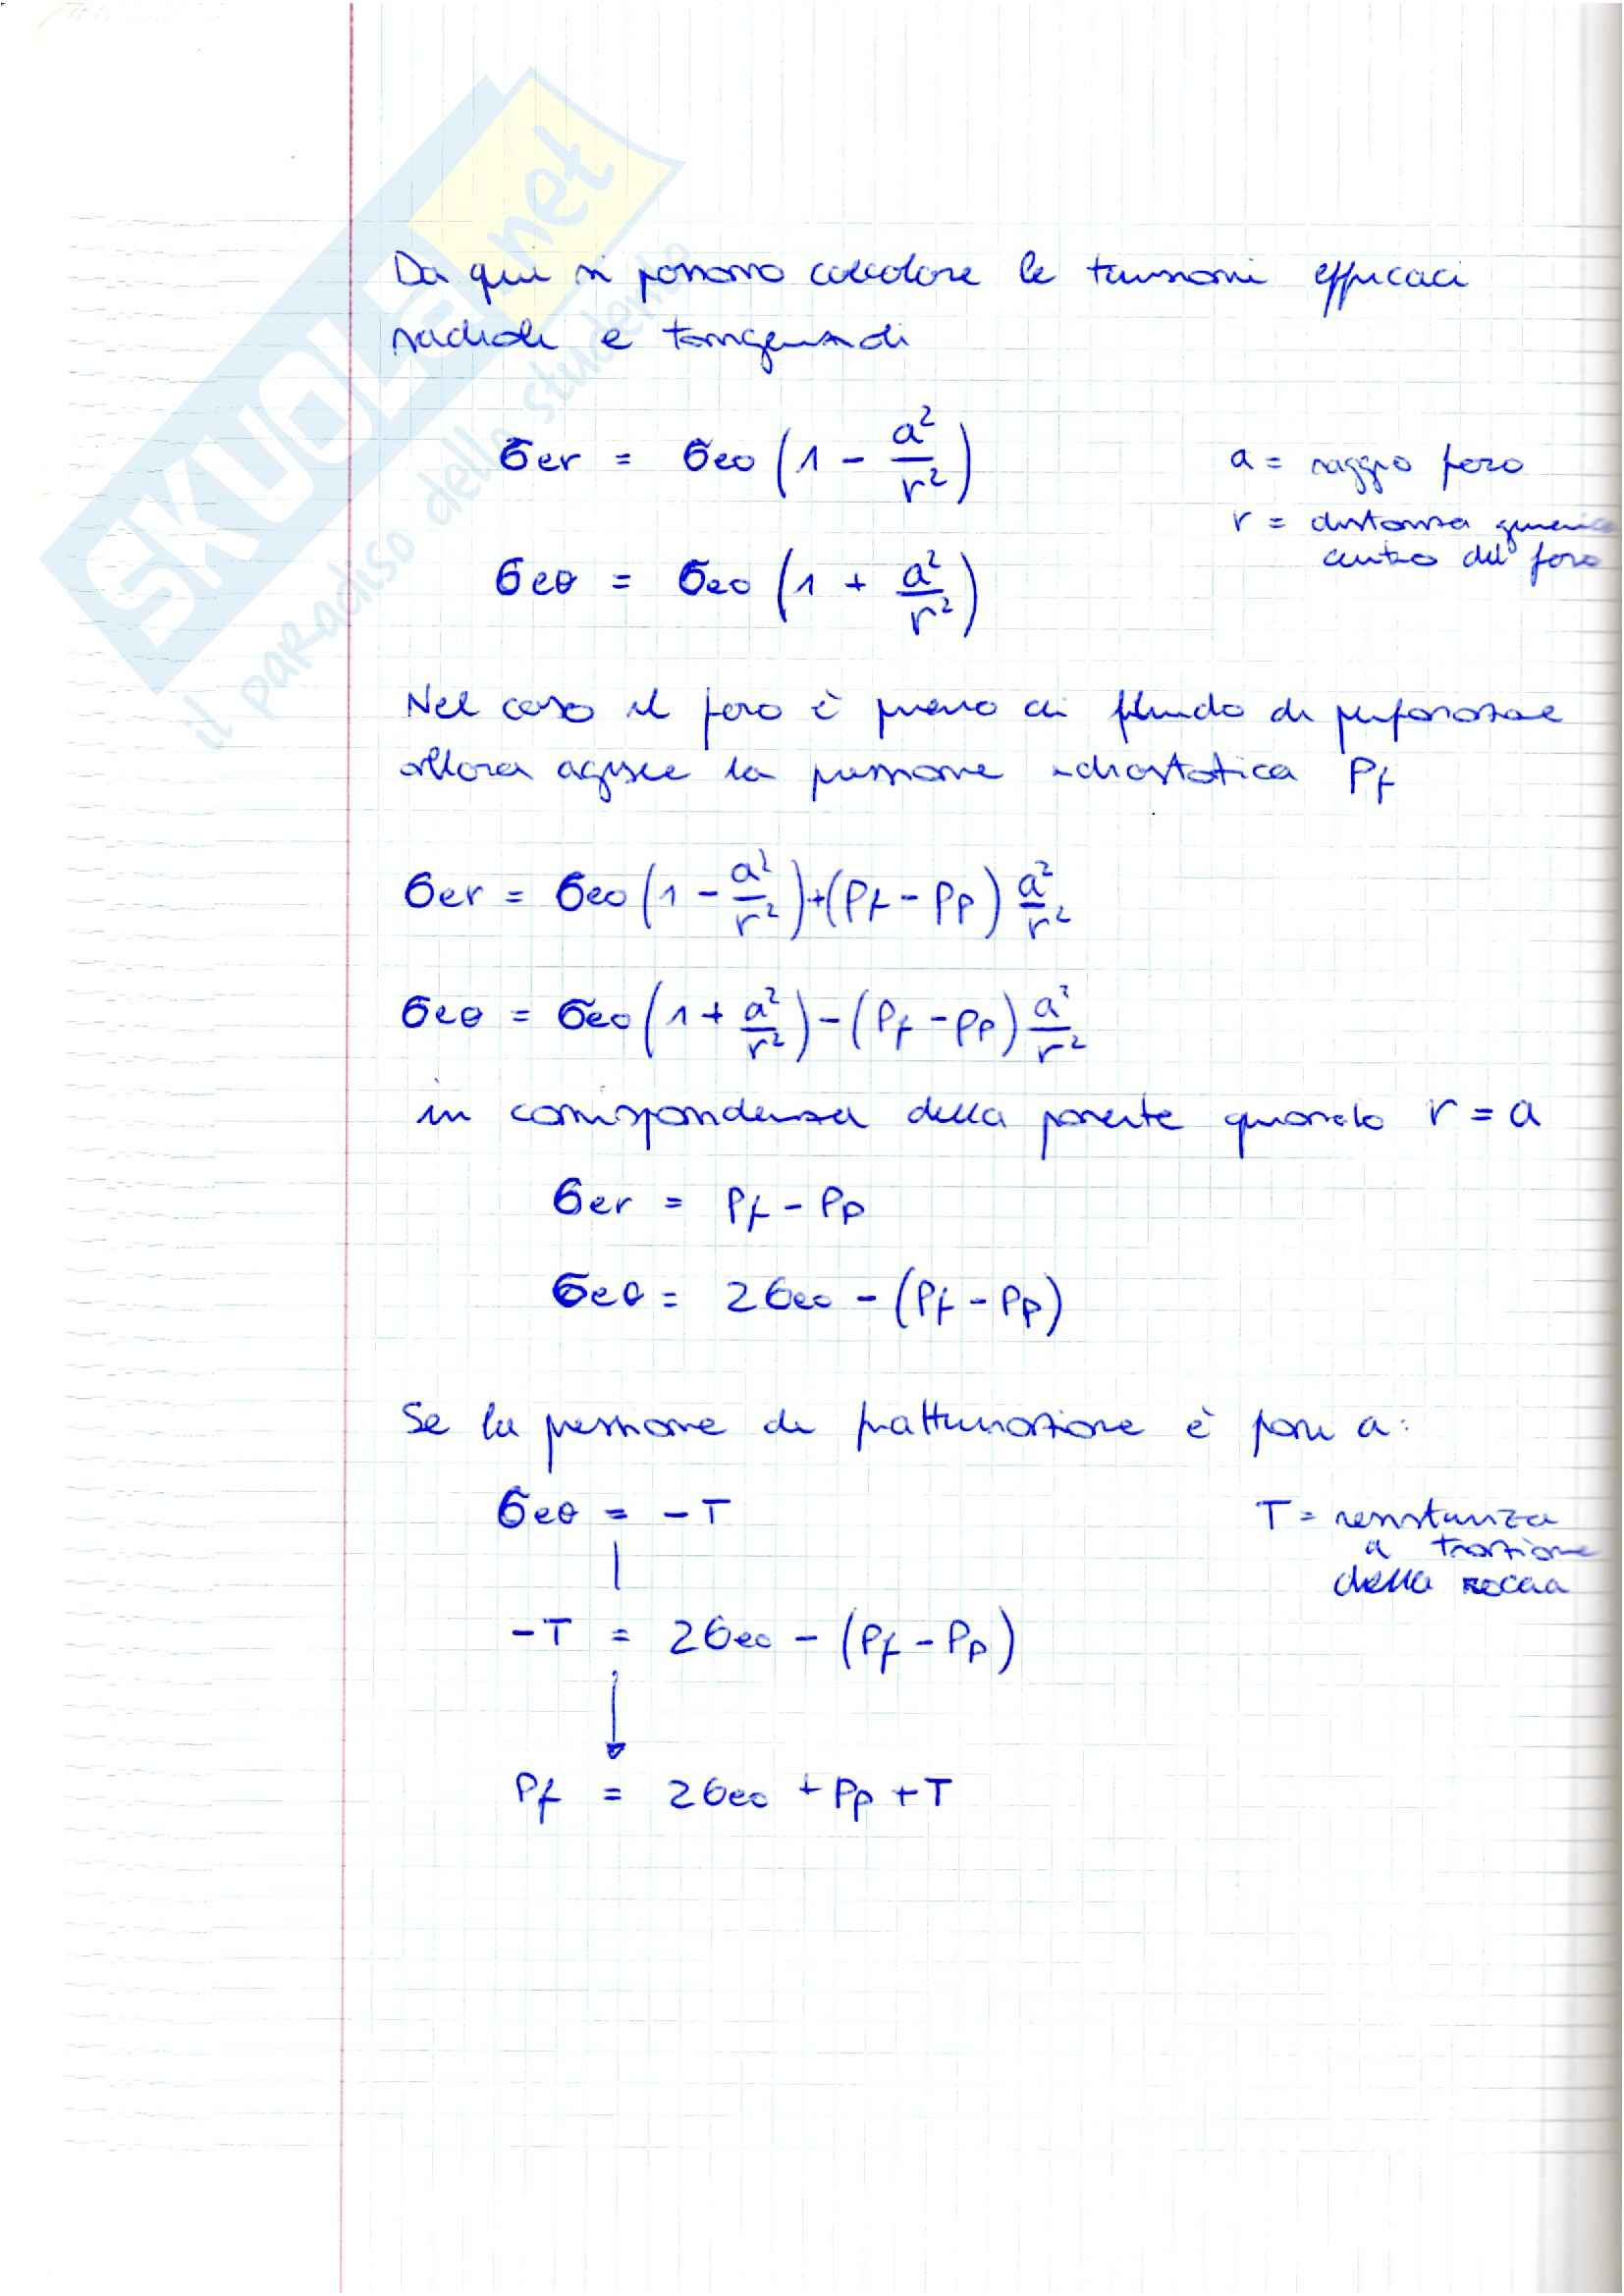 SKUOLA.net
il paradiso dello studente
Da qui si possono calcolare le tensioni efficaci
radiali e tangenziali
σer = σeo (1 - a²/r²)
a = raggio foro
r = distanza generica
centro del foro
σeθ = σeo (1 + a²/r²)
Nel caso il foro è pieno di fluido di perforazione
allora agisce la pressione idrostatica Pf
σer = σeo (1 - a²/r²) + (Pf - Pp) a²/r²
σeθ = σeo (1 + a²/r²) - (Pf - Pp) a²/r²
in corrispondenza della parete quando r = a
σer = Pf - Pp
σeθ = 2σeo - (Pf - Pp)
Se la pressione di fratturazione è pari a:
σeθ = -T
T = resistenza
a trazione
della roccia
-T = 2σeo - (Pf - Pp)
Pf = 2σeo + Pp + T